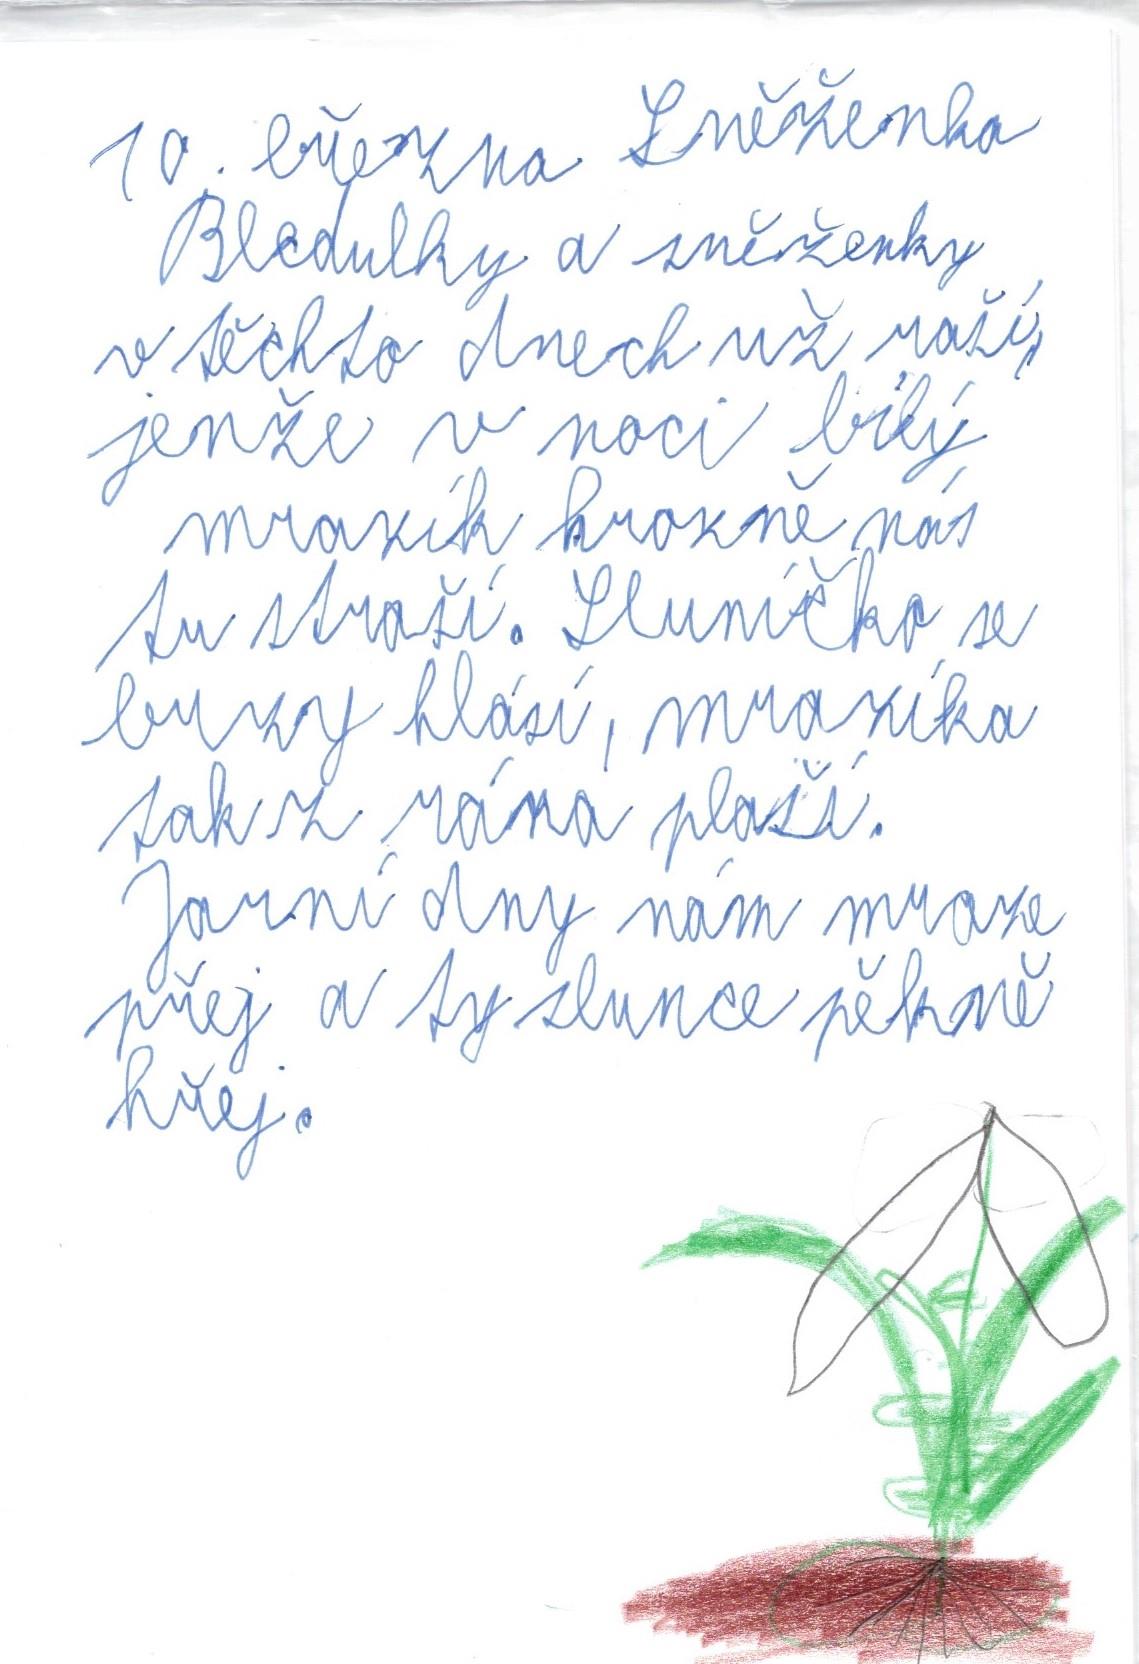 10. března Sněženka
Bledulky a sněženky
v těchto dnech už raší,
jenže v noci bílý
mrazík hrozně nás
tu straší. Sluníčko se
brzy hlásí, mrazíka
tak z rána plaší.
Jarní dny nám mraze
přej a ty slunce pěkně
hřej.